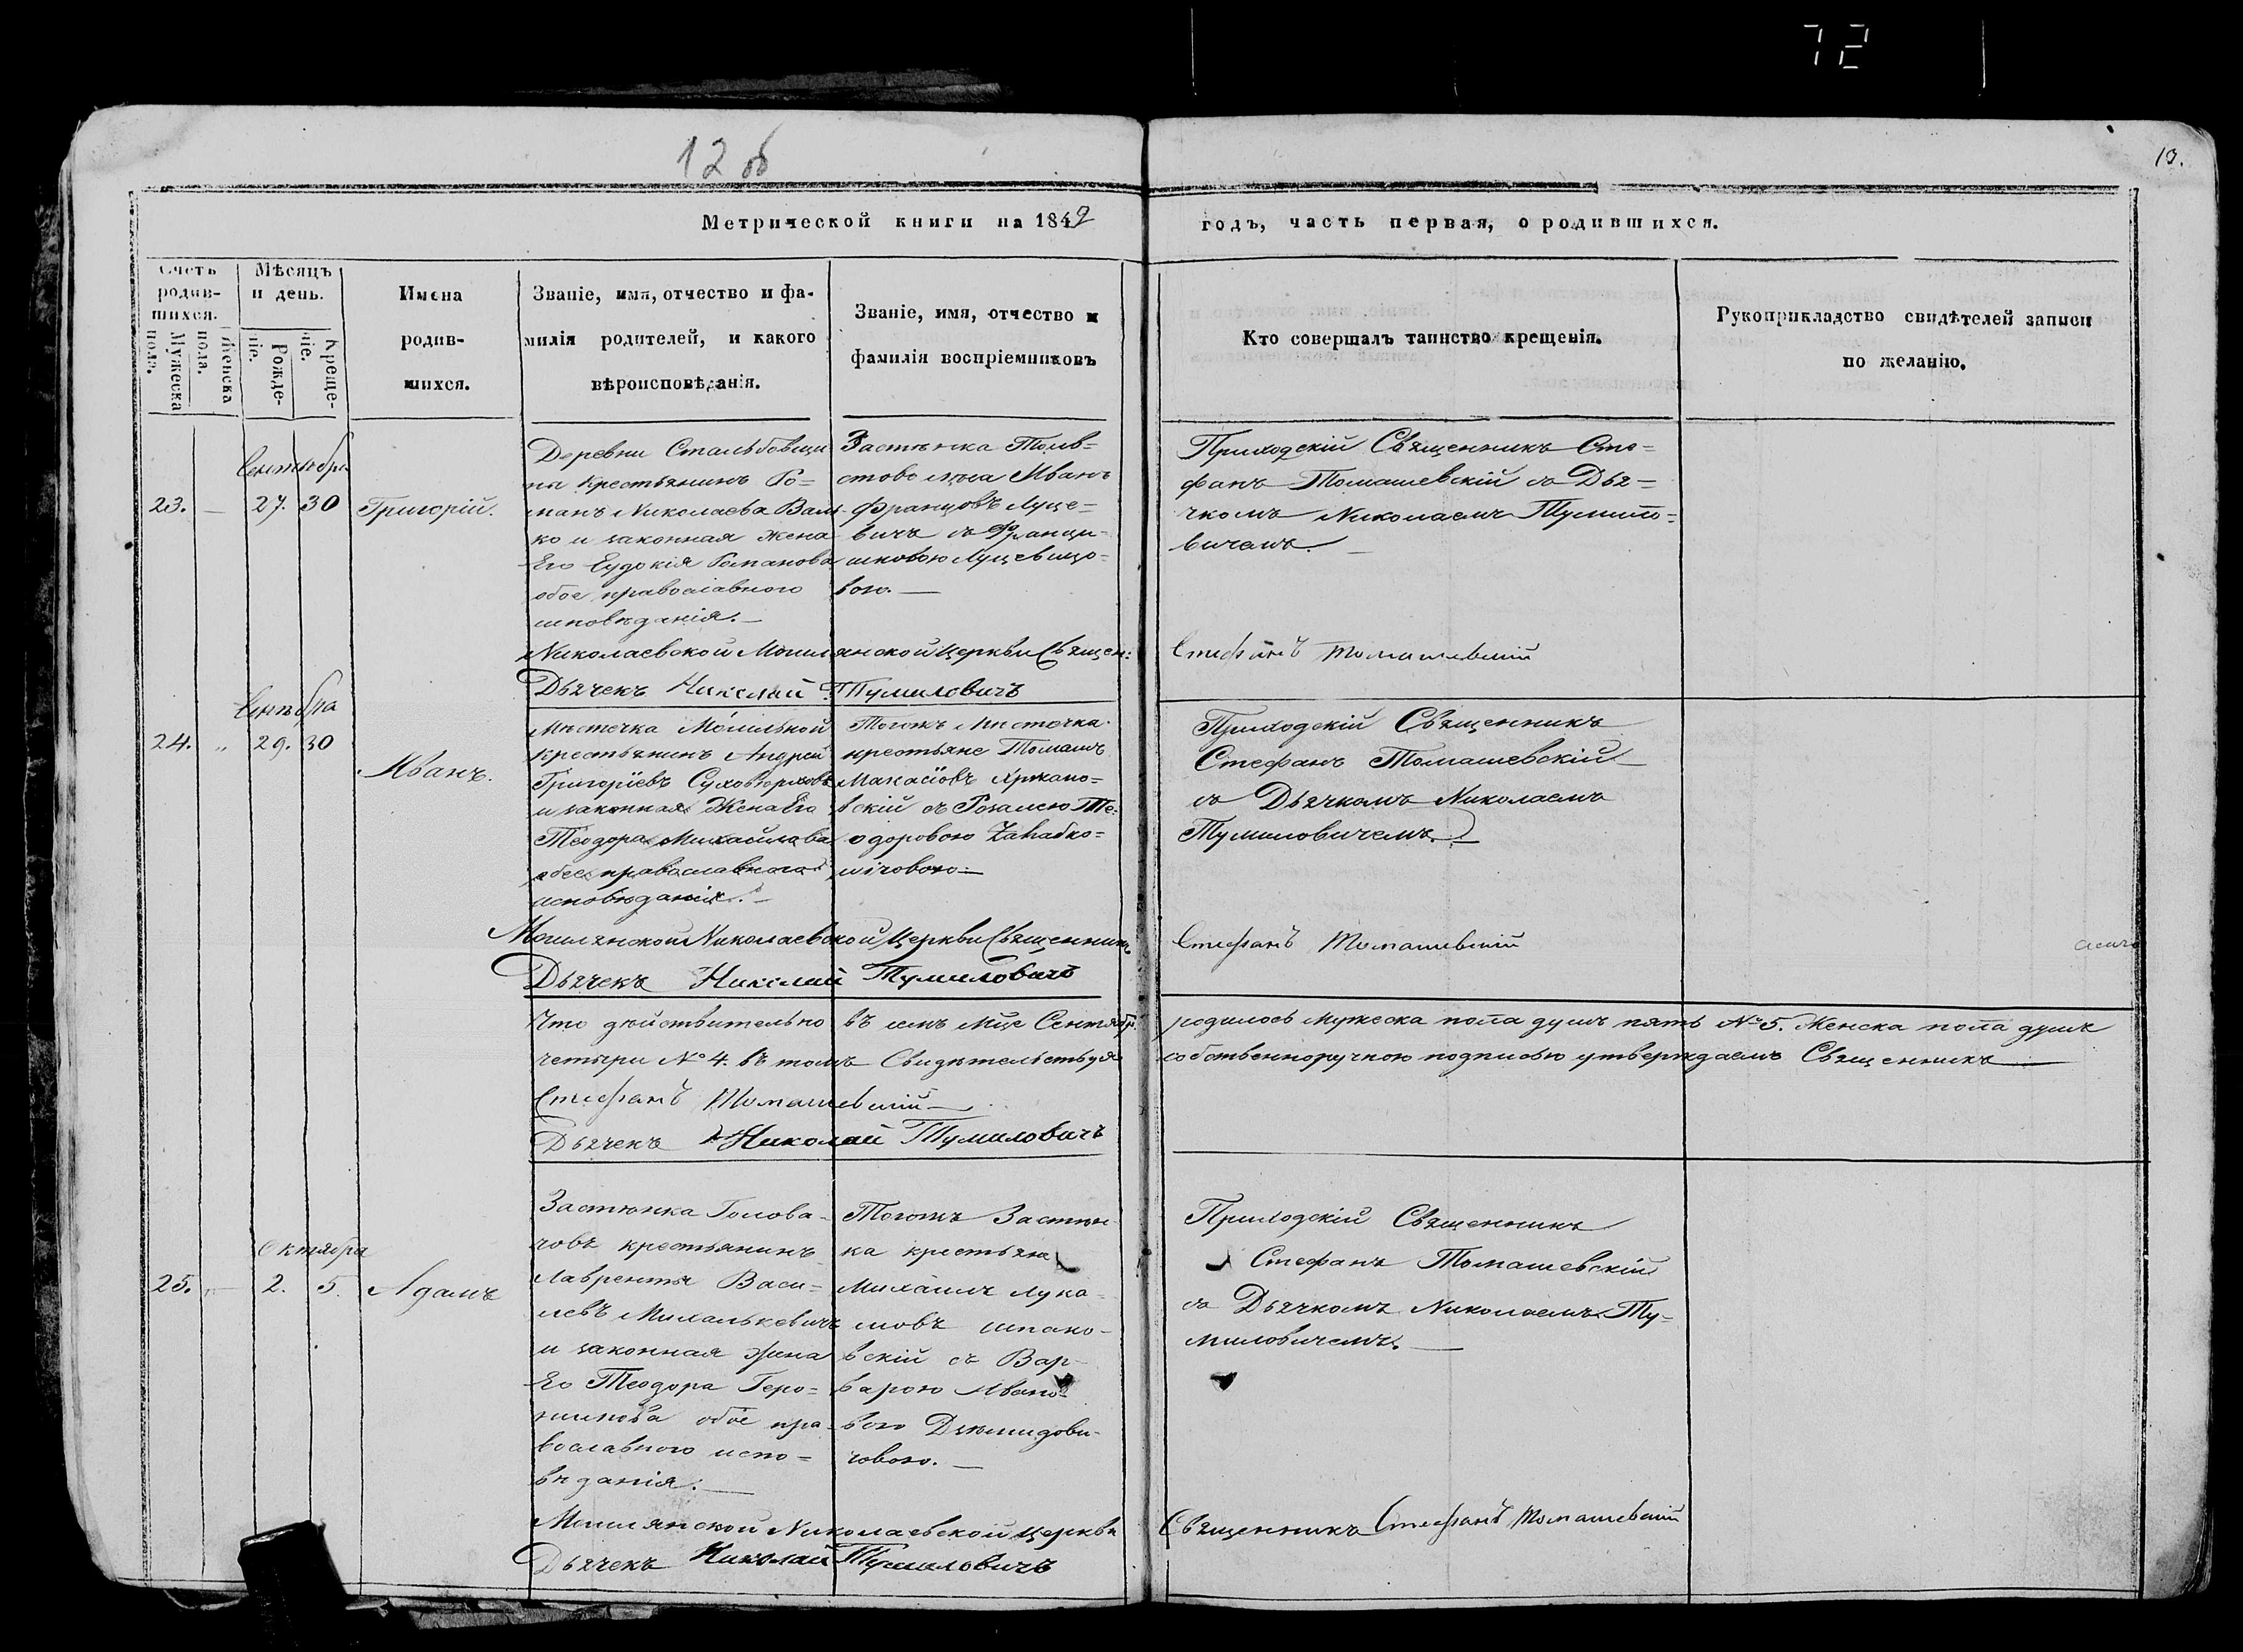 72
12 об
13.
Метрической книги на 1849
годъ, часть первая, о родившихся.
Счетъ родив-шихся.
Мужеска пола.
Женска пола.
Мѣсяцъ и день.
Рожде-ніе.
Креще-ніе.
Имена
родив-
шихся.
Званіе, имя, отчество и фа-
милія родителей, и какого
вѣроисповѣданія.
Званіе, имя, отчество и
фамилія воспріемниковъ
Кто совершалъ таинство крещенія.
Рукоприкладство свидѣтелей записи
по желанію.
Сентября
23. — 27. 30 Григорій.
Деревни
на крестьянинъ Ро=
манъ Николаева
ко и законная жена
Его Еудокія Романова
обое православного
исповѣданія. —
Застѣнка
Иванъ
Францовъ Луце=
вичъ съ Франци-
шковою Луцевицо=
вою. —
Приходскій Священникъ Сте=
фанъ Томашевскій съ Дья=
чкомъ Николаемъ Тумило=
вичемъ. —
Николаевской Могилянской Церкви Священ:
Стефанъ Томашевскій
Дьячекъ Николай Тумиловичъ
Сентября
24. „ 29. 30
Иванъ.
Мѣстечка Могильной
крестьянинъ Андрей
Григоріевъ
и законная Жена Его
Теодора Михайлова
обое православного
исповѣданія. —
Тогожъ Мѣстечка
крестьяне Томашъ
вскій съ Розалею Те=
одоровою
Приходскій Священникъ
Стефанъ Томашевскій
съ Дьячкомъ Николаемъ
Тумиловичемъ. —
Могилянской Николаевской Церкви Священникъ
Стефанъ Томашевскій
Дьячекъ Николай Тумиловичъ
Что дѣйствительно въ семъ Мцѣ Сентябр.
родилось мужеска пола душъ пять №5. Женска пола душъ
четыри №4. въ томъ Свидѣтельствуя
собственноручною подписью утверждаемъ Священникъ
Стефанъ Томашевскій —
Дьячекъ Николай Тумиловичъ
Октября
25. 2. 5. Адамъ
Застѣнка Голова-
човъ крестьянинъ
Лаврентья Васи=
левъ Михалькевичъ
и законная жена
Его Теодора Геро=
нимова обое пра-
вославного испо=
вѣданія. —
Тогожъ Застѣн-
ка крестьяне
Михаилъ Лука-
шовъ Шпако-
вскій съ Вар-
варою Ивано=
вою Демидови-
човою. —
Приходскій Священникъ
Стефанъ Томашевскій
съ Дьячкомъ Николаемъ Ту=
миловичемъ. —
Могилянской Николаевской Церкви
Священникъ Стефанъ Томашевскій
Дьячекъ Николай Тумиловичъ